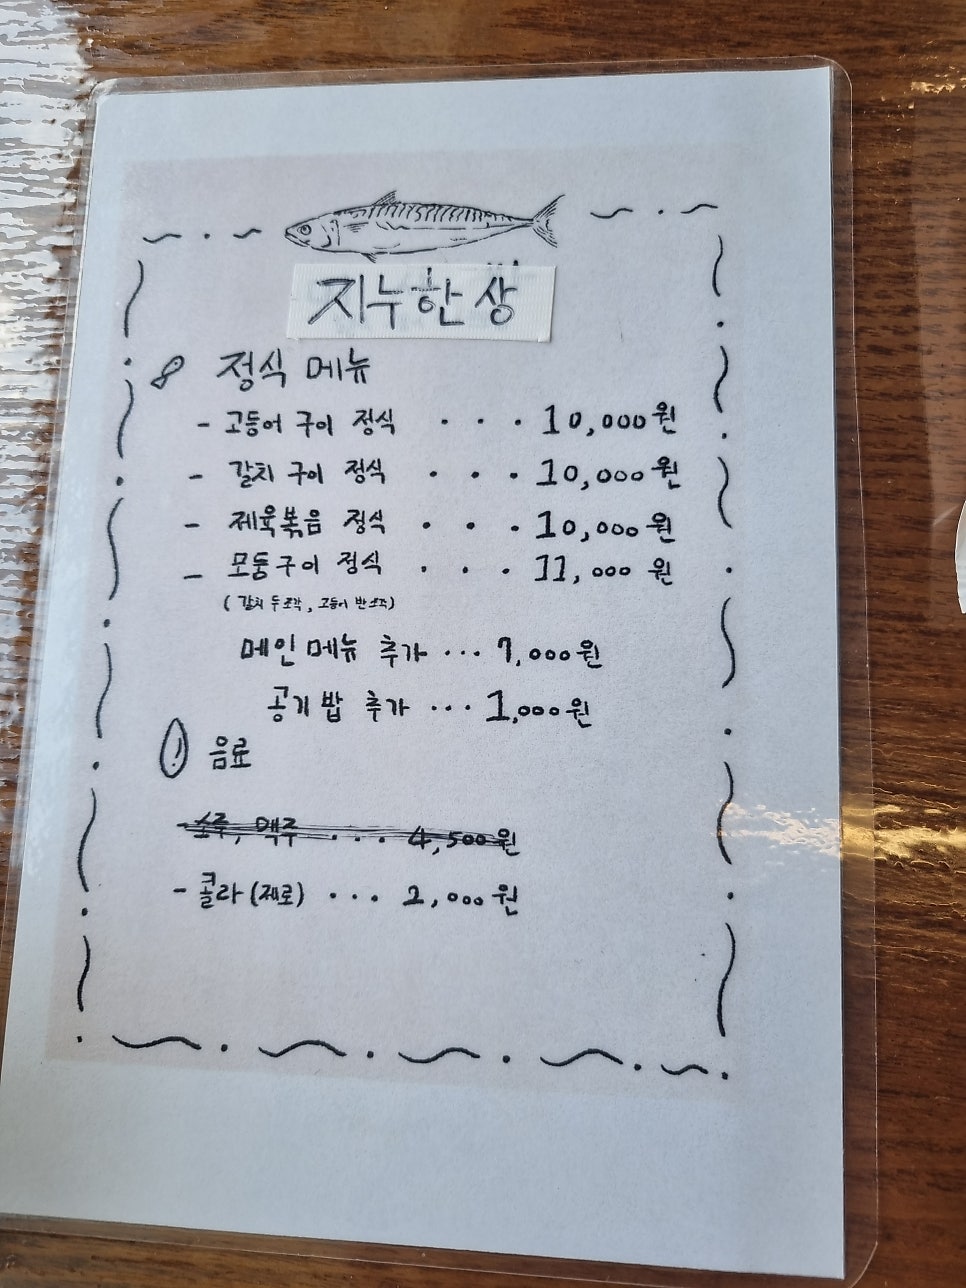 지누한상
정식 메뉴
- 고등어 구이 정식 · · · 10,000원
- 갈치 구이 정식 · · · 10,000원
- 제육볶음 정식 · · · 10,000원
- 모둠구이 정식 · · · 11,000원
( 갈치 두조각, 고등어 반조각)
메인 메뉴 추가 ··· 7,000원
공기밥 추가 ··· 1,000원
음료
- 소주, 맥주 · · · 4,500원
- 콜라 (제로) ··· 2,000원